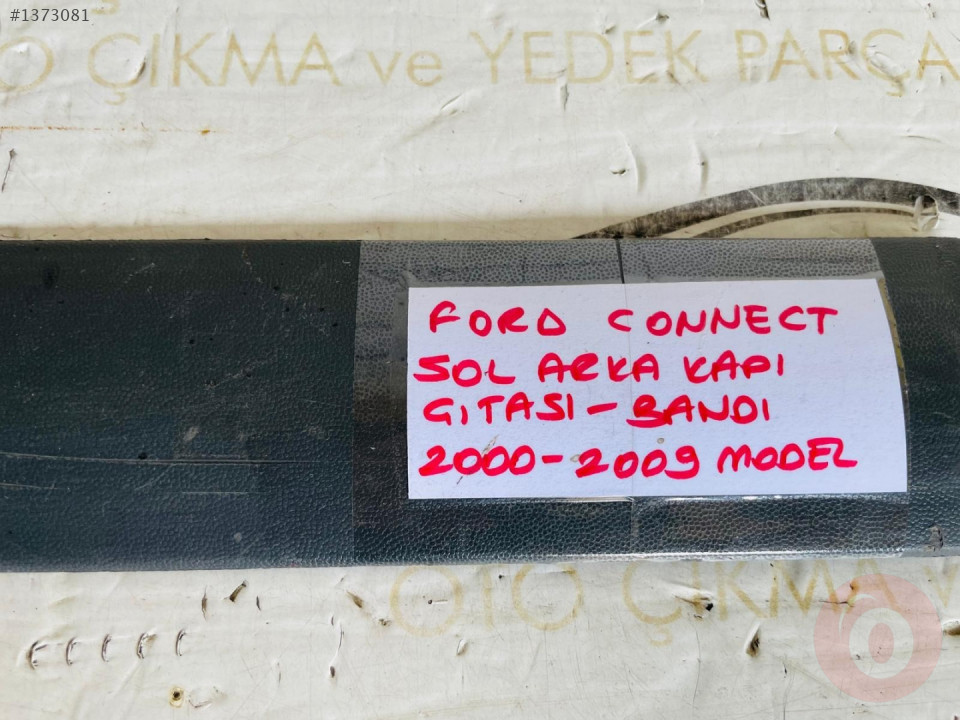 #1373081
OTO ÇIKMA ve YEDEK PARÇA
FORD CONNECT
SOL ARKA KAPI
GITASI - BANDI
2000-2009 MODEL
OTO ÇIKMA V